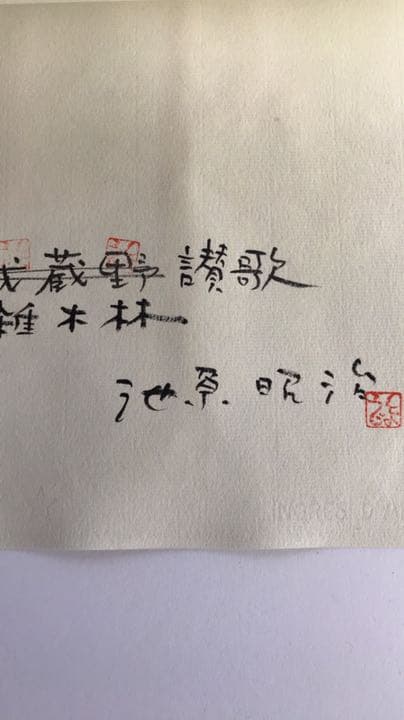 武蔵野讃歌
雑木林
池原昭治